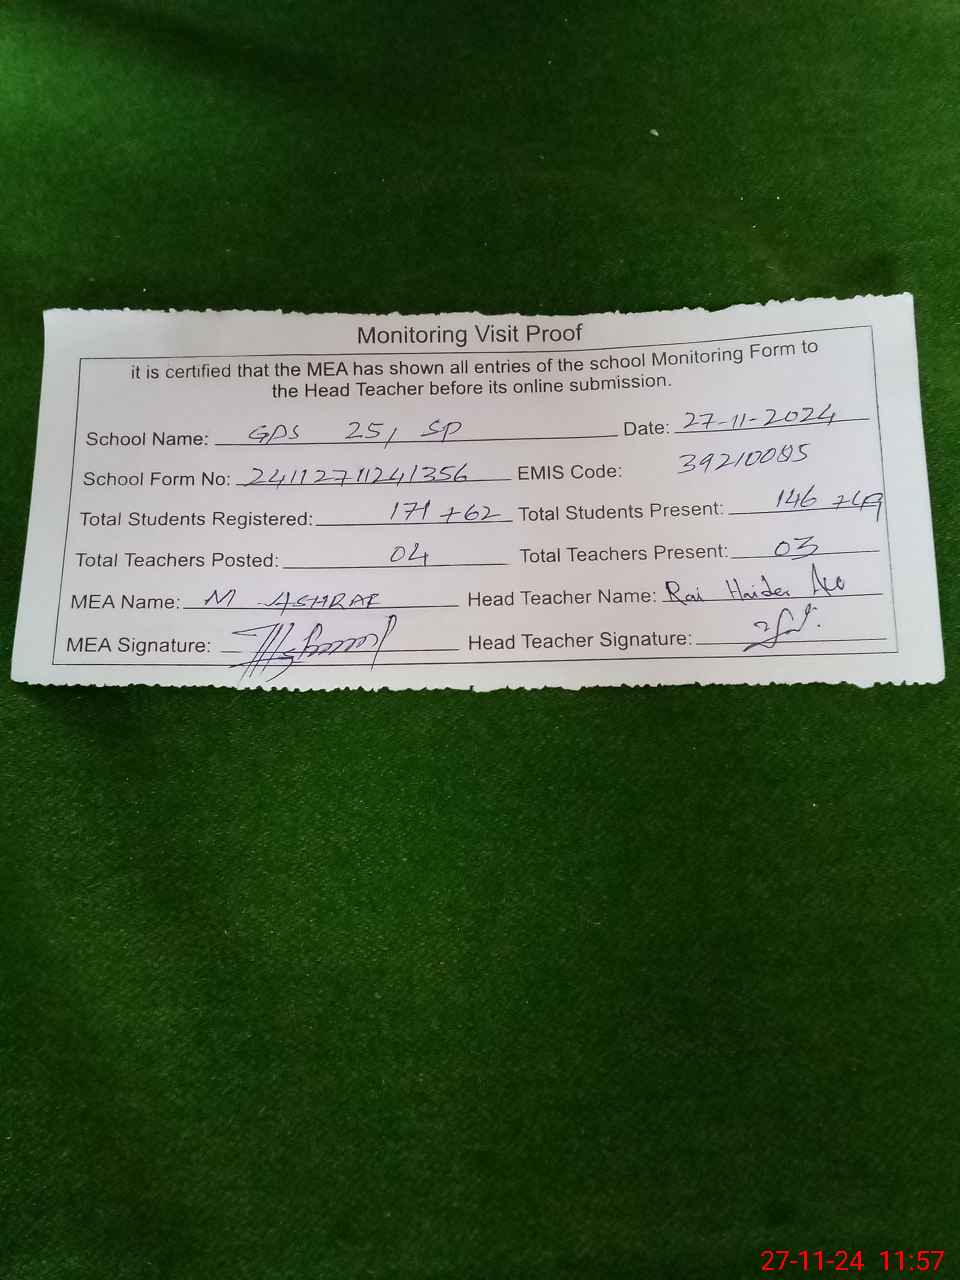 Monitoring Visit Proof
it is certified that the MEA has shown all entries of the school Monitoring Form to
the Head Teacher before its online submission.
School Name: GPS 25/ SP Date: 27-11-2024
School Form No: 24112711241356 EMIS Code: 39210085
Total Students Registered: 171 +62 Total Students Present: 146 +49
Total Teachers Posted: 04 Total Teachers Present: 03
MEA Name: M ASHRAF Head Teacher Name: Rai Haider
MEA Signature: Head Teacher Signature:
27-11-24 11:57